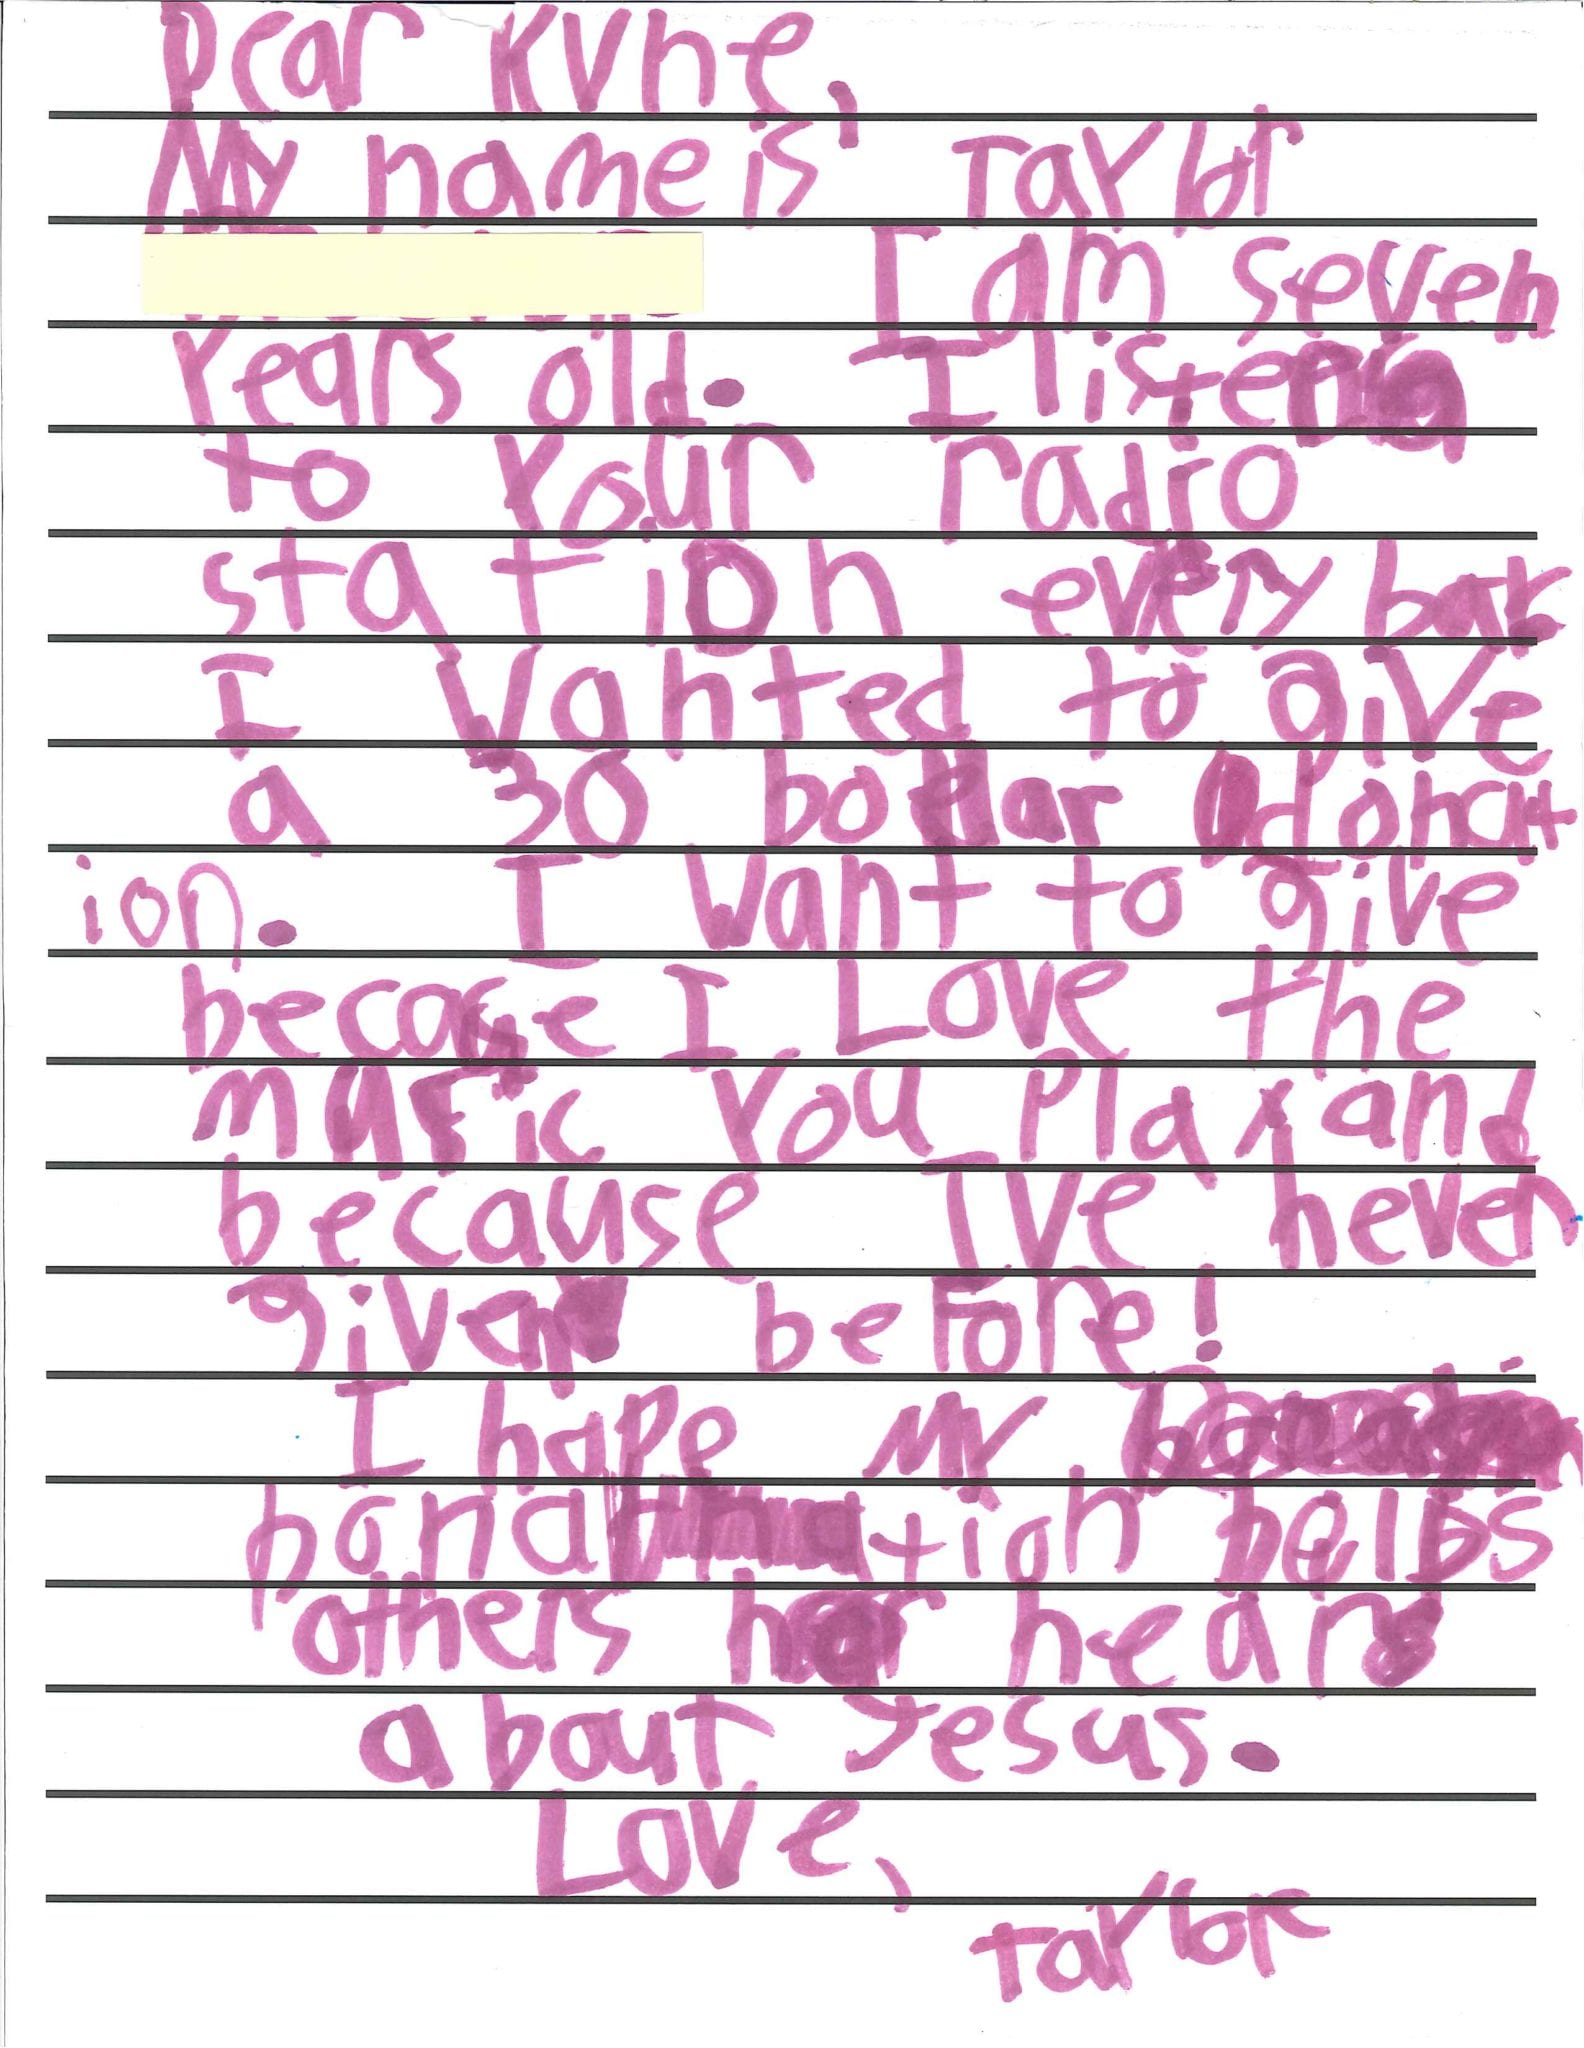 Dear KVNE,
My name is Taylor
I am seven
years old. I listen
to your radio
station every bay
I wanted to give
a 30 bollar donat
ion. I want to give
becace I Love the
music you play and
because I've never
given before!
I hope my
bonation helps
others hear
about Jesus.
Love,
Taylor